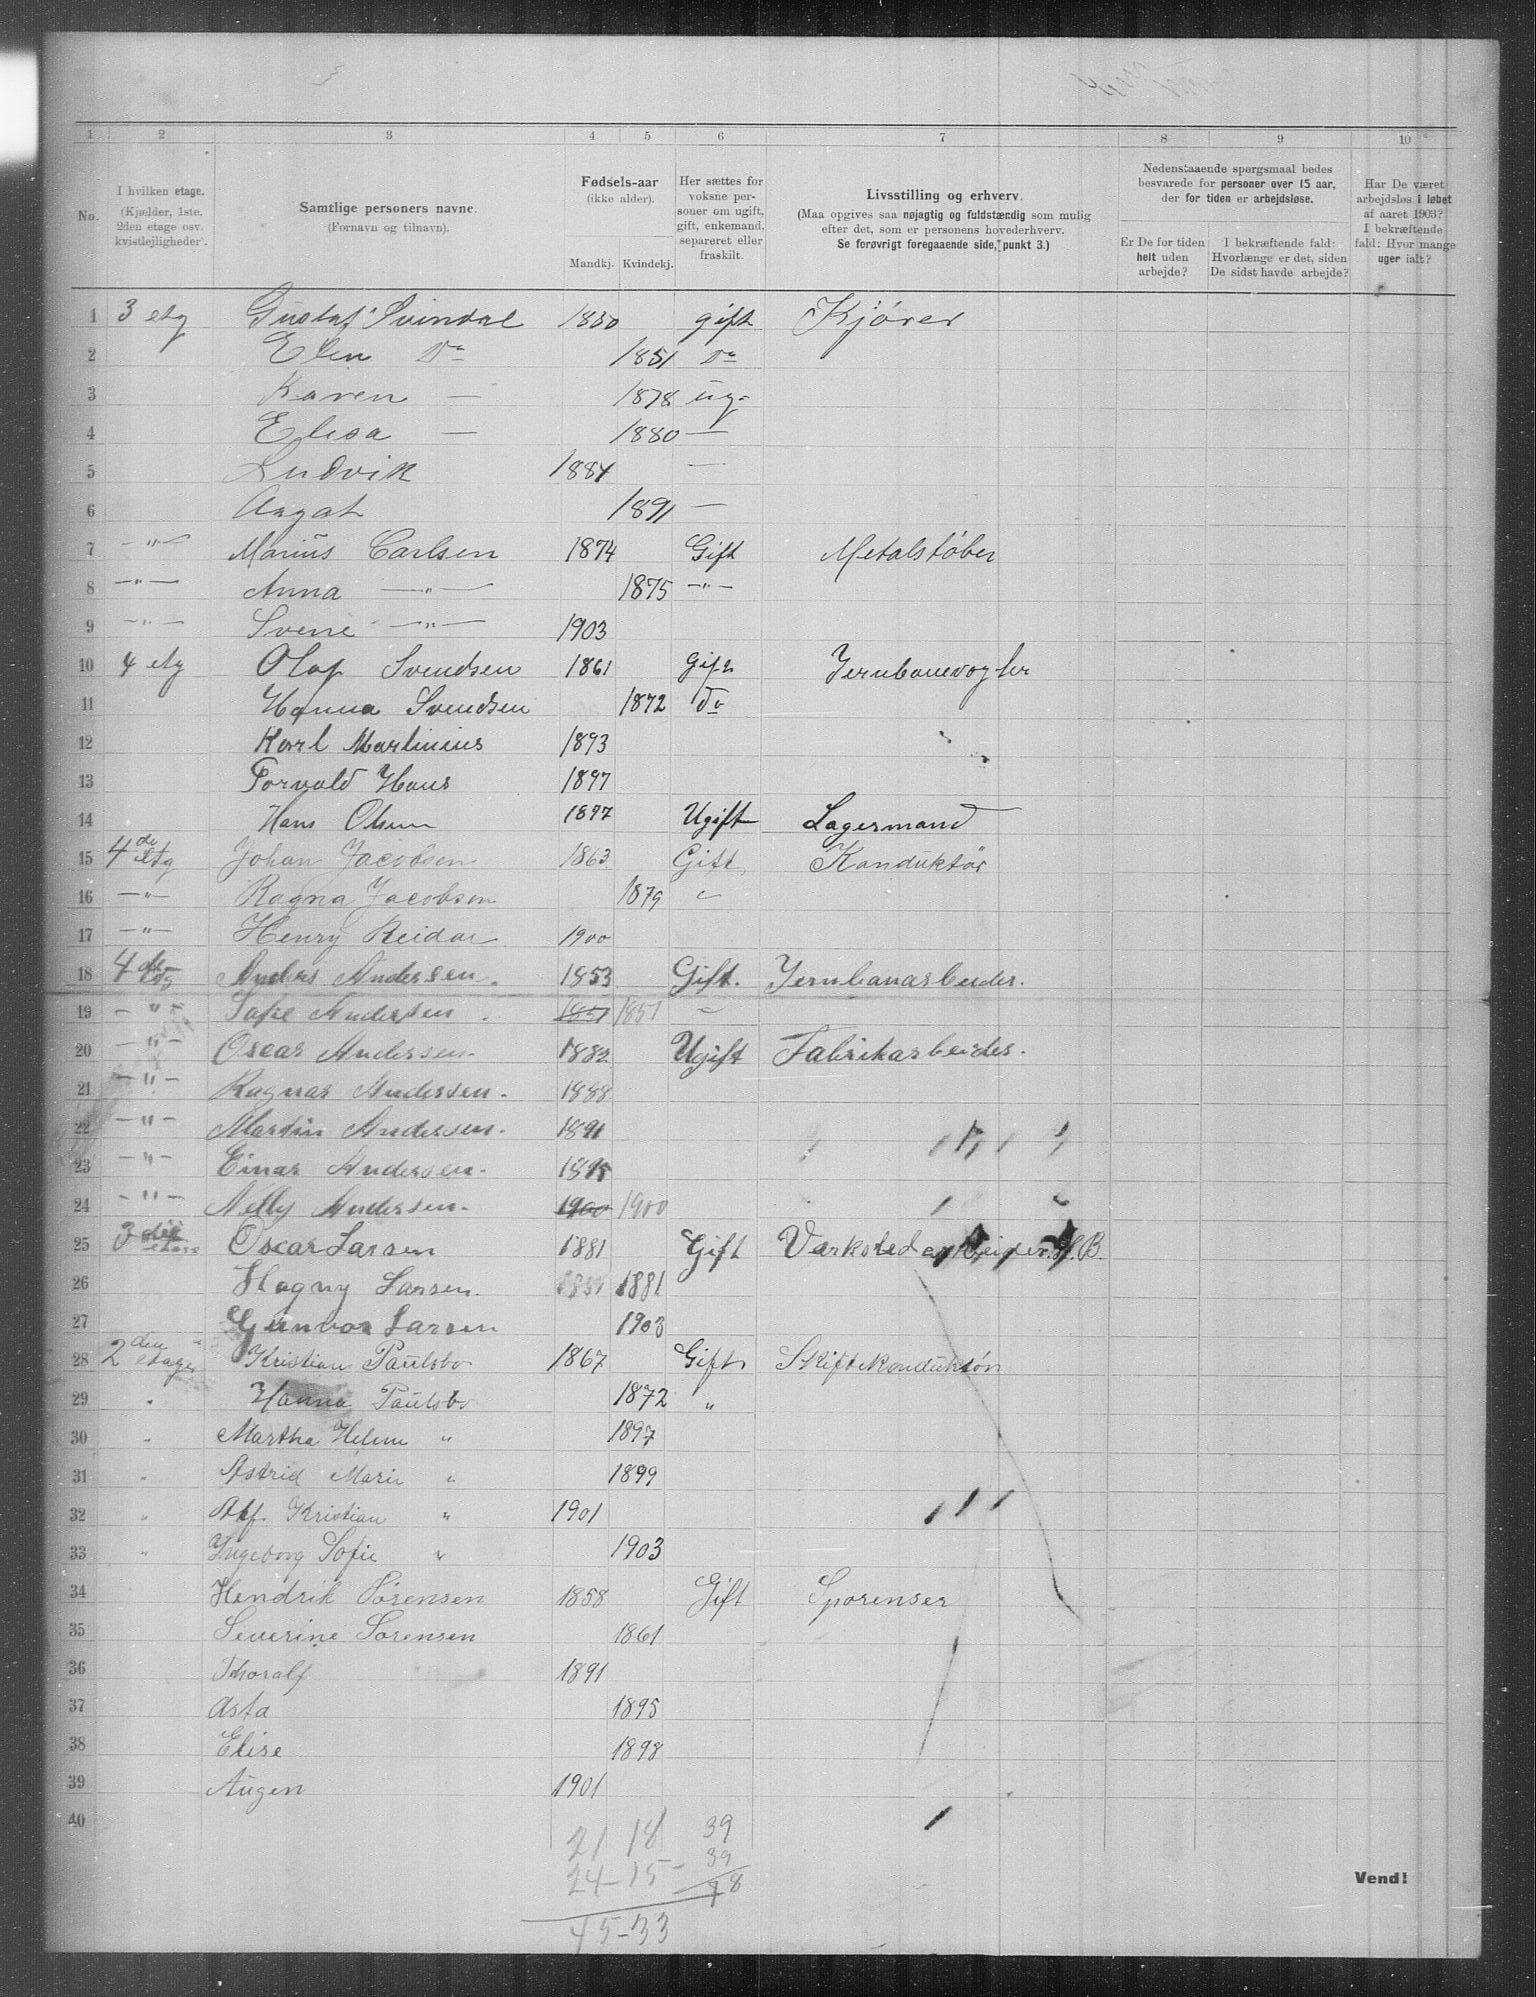 1 2 3 4 5 6 7 8 9 10
No.
I hvilken etage.
(Kjælder, 1ste.
2den etage osv.
kvistlejligheder.
Samtlige personers navne.
(Fornavn og tilnavn).
Fødsels-aar
(ikke alder).
Mandkj. Kvindekj.
Her sættes for
voksne per-
soner om ugift,
gift, enkemand,
separeret eller
fraskilt.
Livsstilling og erhverv.
(Maa opgives saa nøjagtig og fuldstændig som mulig
efter det, som er personens hovederhverv.
Se forøvrigt foregaaende side, punkt 3.)
Nedenstaaende spørgsmaal bedes
besvarede for personer over 15 aar,
der for tiden er arbejdsløse.
Er De for tiden
helt uden
arbejde?
I bekræftende fald:
Hvorlænge er det, siden
De sidst havde arbejde?
Har De været
arbejdsløs i løbet
af aaret 1903?
I bekræftende
fald: Hvor mange
uger ialt?
1 3 etg Gustaf Svindal 1850 gift Kjører
2 Elen Do 1851 Do
3 Karen — 1878 ug-
4 Elisa — 1880 —
5 Ludvik 1884 —
6 Aagat 1891 —
7 —"— Marius Carlsen 1874 Gift Metalstøber
8 —"— Anna —"— 1875 —"—
9 —"— Svene —"— 1903
10 4 etg Olaf Svendsen 1861 Gift Jernbanevogter
11 Hanna Svendsen 1872 do
12 Karl Martinius 1893
13 Torvald Hans 1897
14 Hans Olsen 1897 Ugift Lagermand
15 4de etg Johan Jacobsen 1863 Gift Konduktör
16 —"— Ragna Jacobsen 1879 "
17 —"— Henry Reidar 1900
18 4de etg Anders Andersen. 1853 Gift. Jernbanarbeider.
19 —"— Andersen. 1851 1851 "
20 —"— Oscar Andersen. 1882 Ugift Fabrikarbeider.
21 —"— Ragnar Andersen. 1888
22 —"— Martin Andersen. 1891
23 —"— Einar Andersen. 1895
24 —"— Nelly Andersen. 1900 1900
25 3die etage Oscar Larsen 1881 Gift Værkstedarbeider. H.B.
26 Hagny Larsen. 1881 1881
27 Gunvor Larsen 1903
28 2den etage Kristian Paulsbo 1867 Gift Skiftekonduktøn
29 " Hanna Paulsbo 1872 "
30 " Martha Helene " 1897
31 " Astrid Marie " 1899
32 " Alf. Kristian " 1901
33 " Ingeborg Sofie " 1903
34 Hendrik Sørensen 1858 Gift Sporenser
35 Severine Sørensen 1861
36 Thoralf 1891
37 Asta 1895
38 Elise 1898
39 Augen 1901
40
21 18 39
24-15- 39
78
45-33
Vend!